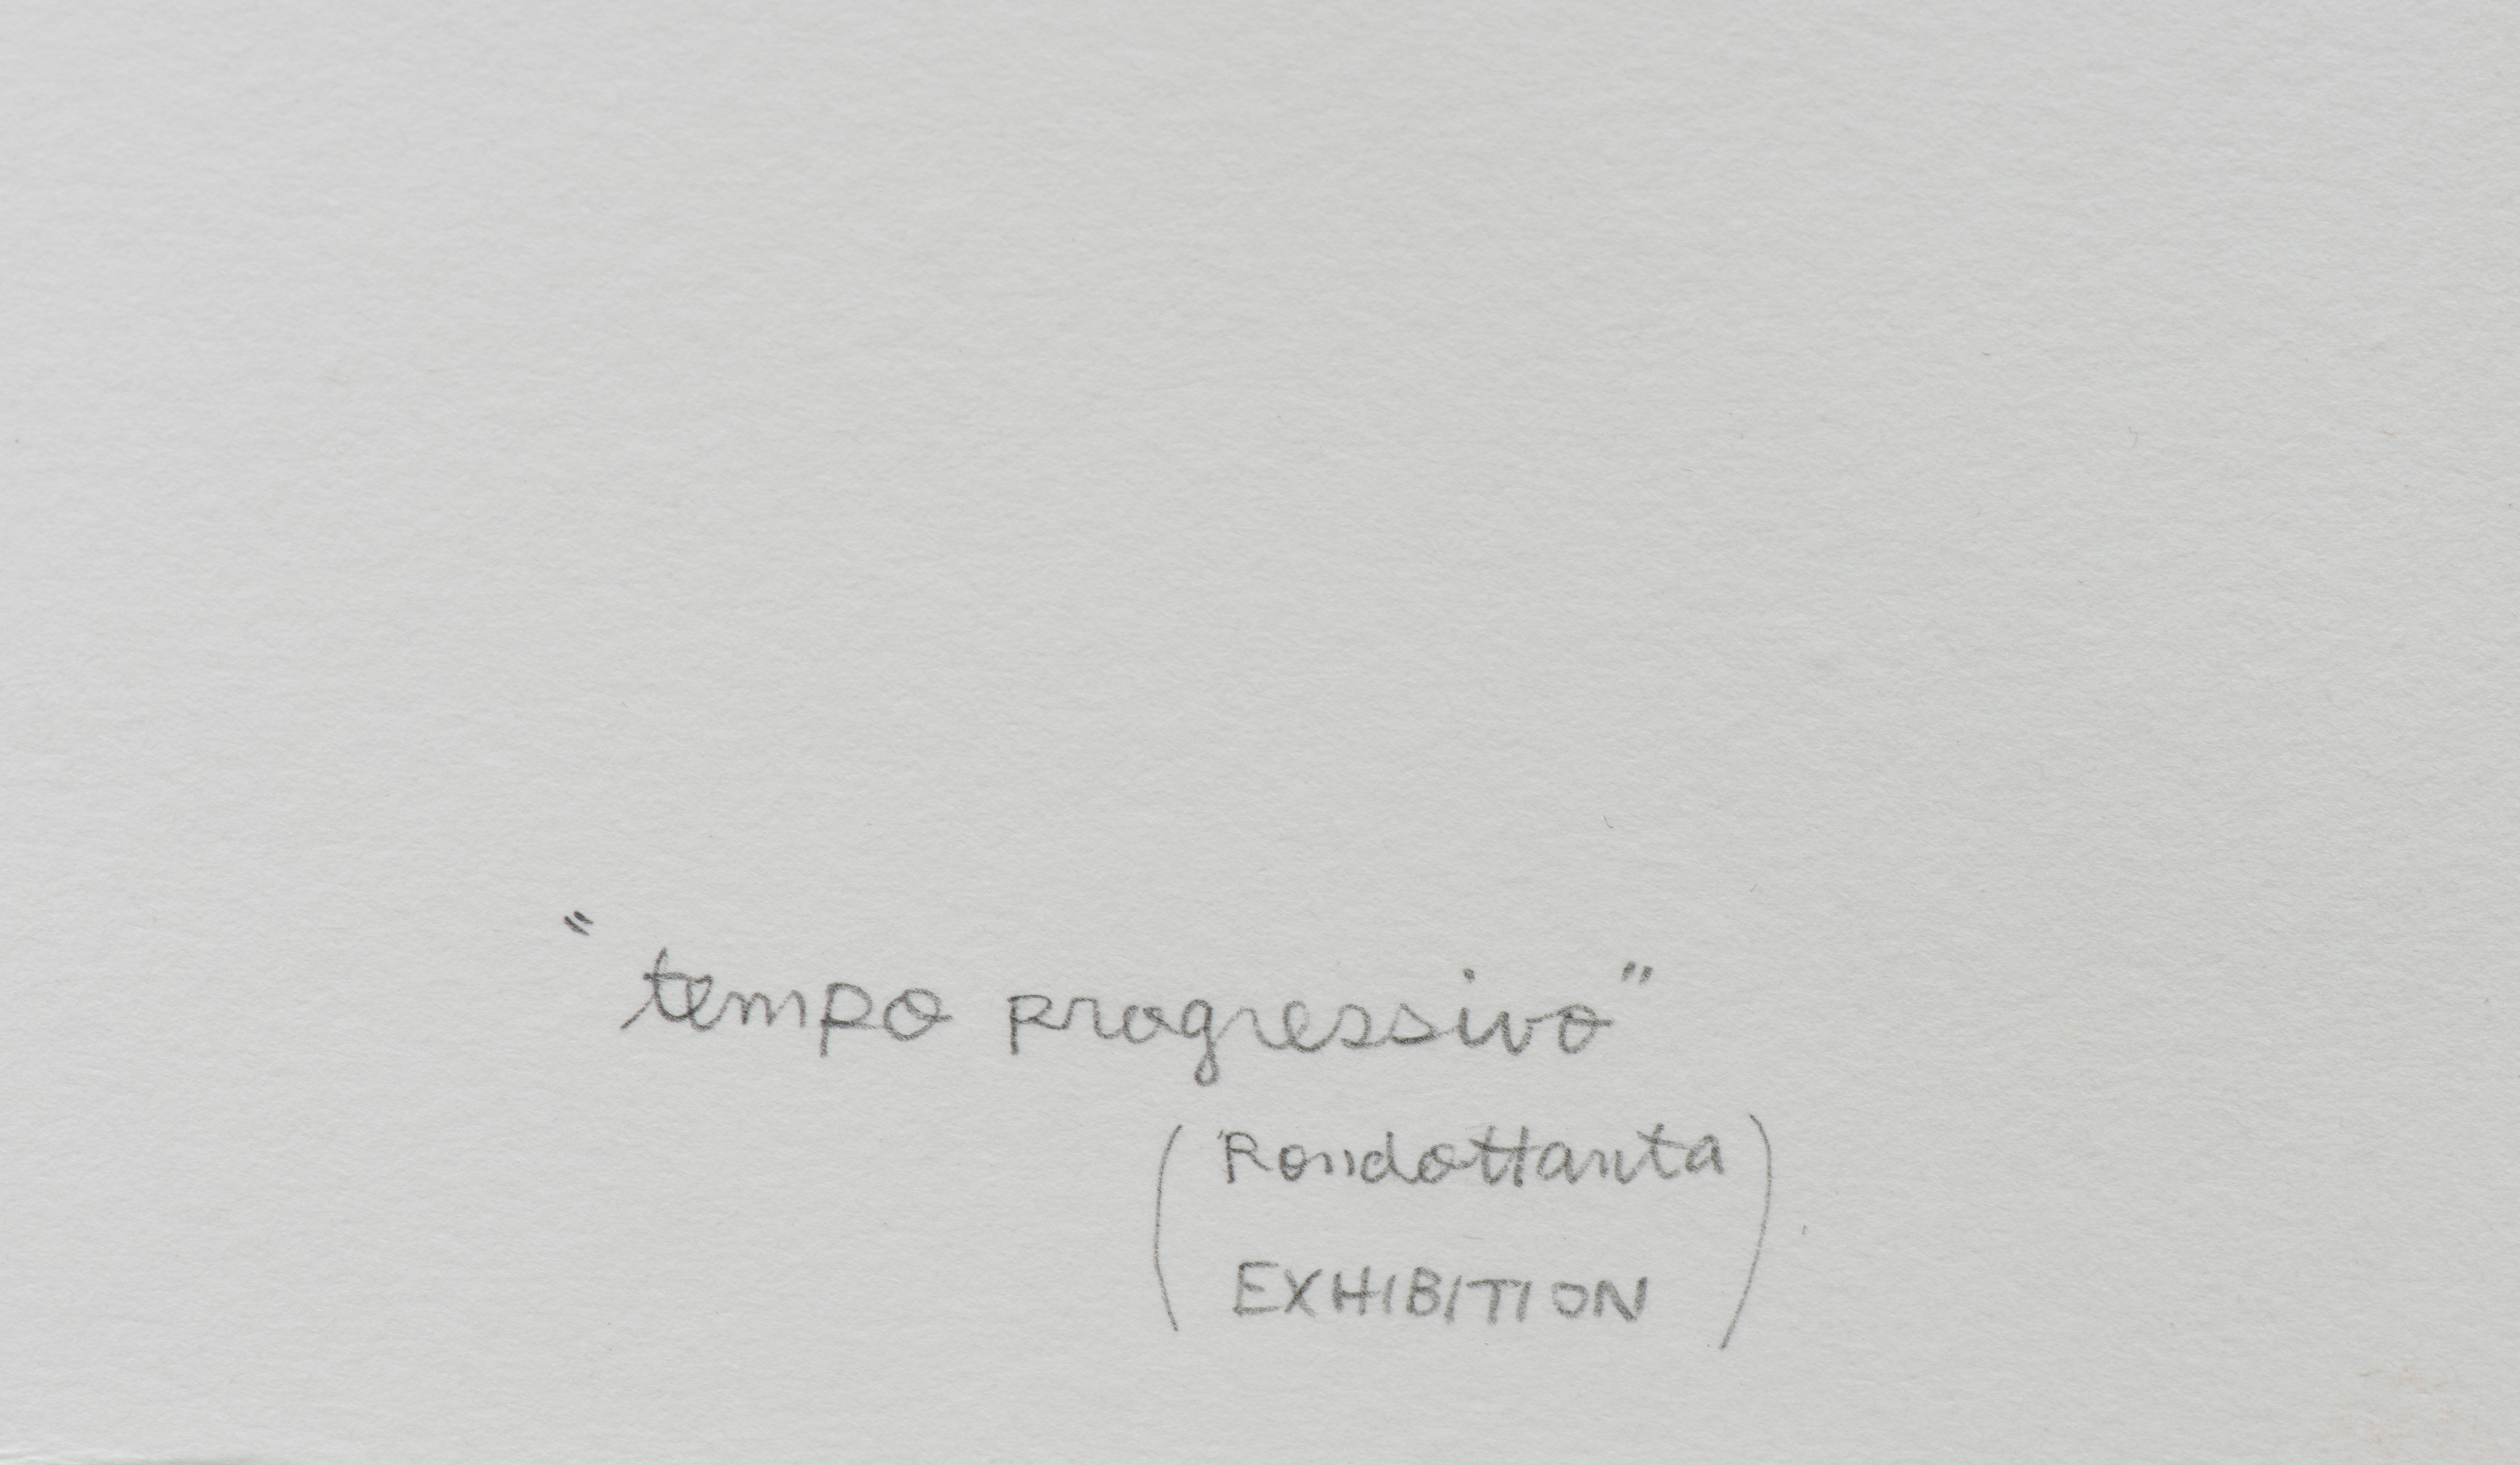 "tempo progressivo"
(Rondottanta
EXHIBITION)